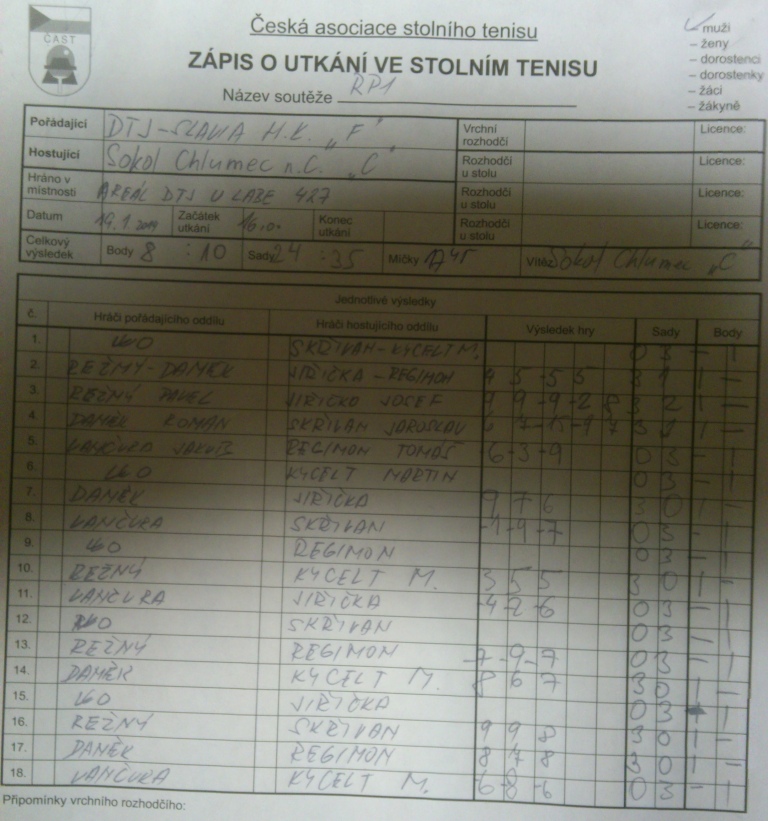 ČAST
Česká asociace stolního tenisu
ZÁPIS O UTKÁNÍ VE STOLNÍM TENISU
Název soutěže RP1
muži
– ženy
– dorostenci
– dorostenky
– žáci
– žákyně
Pořádající DTJ-SLAVIA H.K. "F" Vrchní rozhodčí Licence:
Hostující Sokol Chlumec n.C. "C" Rozhodčí u stolu Licence:
Hráno v místnosti AREÁL DTJ U LABE 427 Rozhodčí u stolu Licence:
Datum 19.1.2019 Začátek utkání 16.0. Konec utkání Rozhodčí u stolu Licence:
Celkový výsledek Body 8 : 10 Sady 24 : 35 Míčky Vítěz Sokol Chlumec "C"
Jednotlivé výsledky
č. Hráči pořádajícího oddílu Hráči hostujícího oddílu Výsledek hry Sady Body
1. WO SKŘIVAN-KYCELT M. 0 3 – 1
2. REŽNÝ-DANĚK JIŘIČKA-REGIMON 9 5 -5 5 3 1 1 –
3. REŽNÝ PAVEL JIŘIČKO JOSEF 9 9 -9 -2 8 3 2 1 –
4. DANĚK ROMAN SKŘIVAN JAROSLAV 6 7 -15 -9 7 3 2 1 –
5. VANČURA JAKUB REGIMON TOMÁŠ -6 -3 -9 0 3 – 1
6. WO KYCELT MARTIN 0 3 – 1
7. DANĚK JIŘIČKA 9 7 6 3 0 1 –
8. VANČURA SKŘIVAN -9 -7 0 3 – 1
9. WO REGIMON 0 3 – 1
10. REŽNÝ KYCELT M. 3 5 5 3 0 1 –
11. VANČURA JIŘIČKA -4 -2 -6 0 3 – 1
12. WO SKŘIVAN 0 3 – 1
13. REŽNÝ REGIMON -7 -9 -7 0 3 – 1
14. DANĚK KYCELT M. 8 6 7 3 0 1 –
15. WO JIŘIČKA 0 3 – 1
16. REŽNÝ SKŘIVAN 9 9 8 3 0 1 –
17. DANĚK REGIMON 8 7 8 3 0 1 –
18. VANČURA KYCELT M. -6 -8 -6 0 3 – 1
Připomínky vrchního rozhodčího: